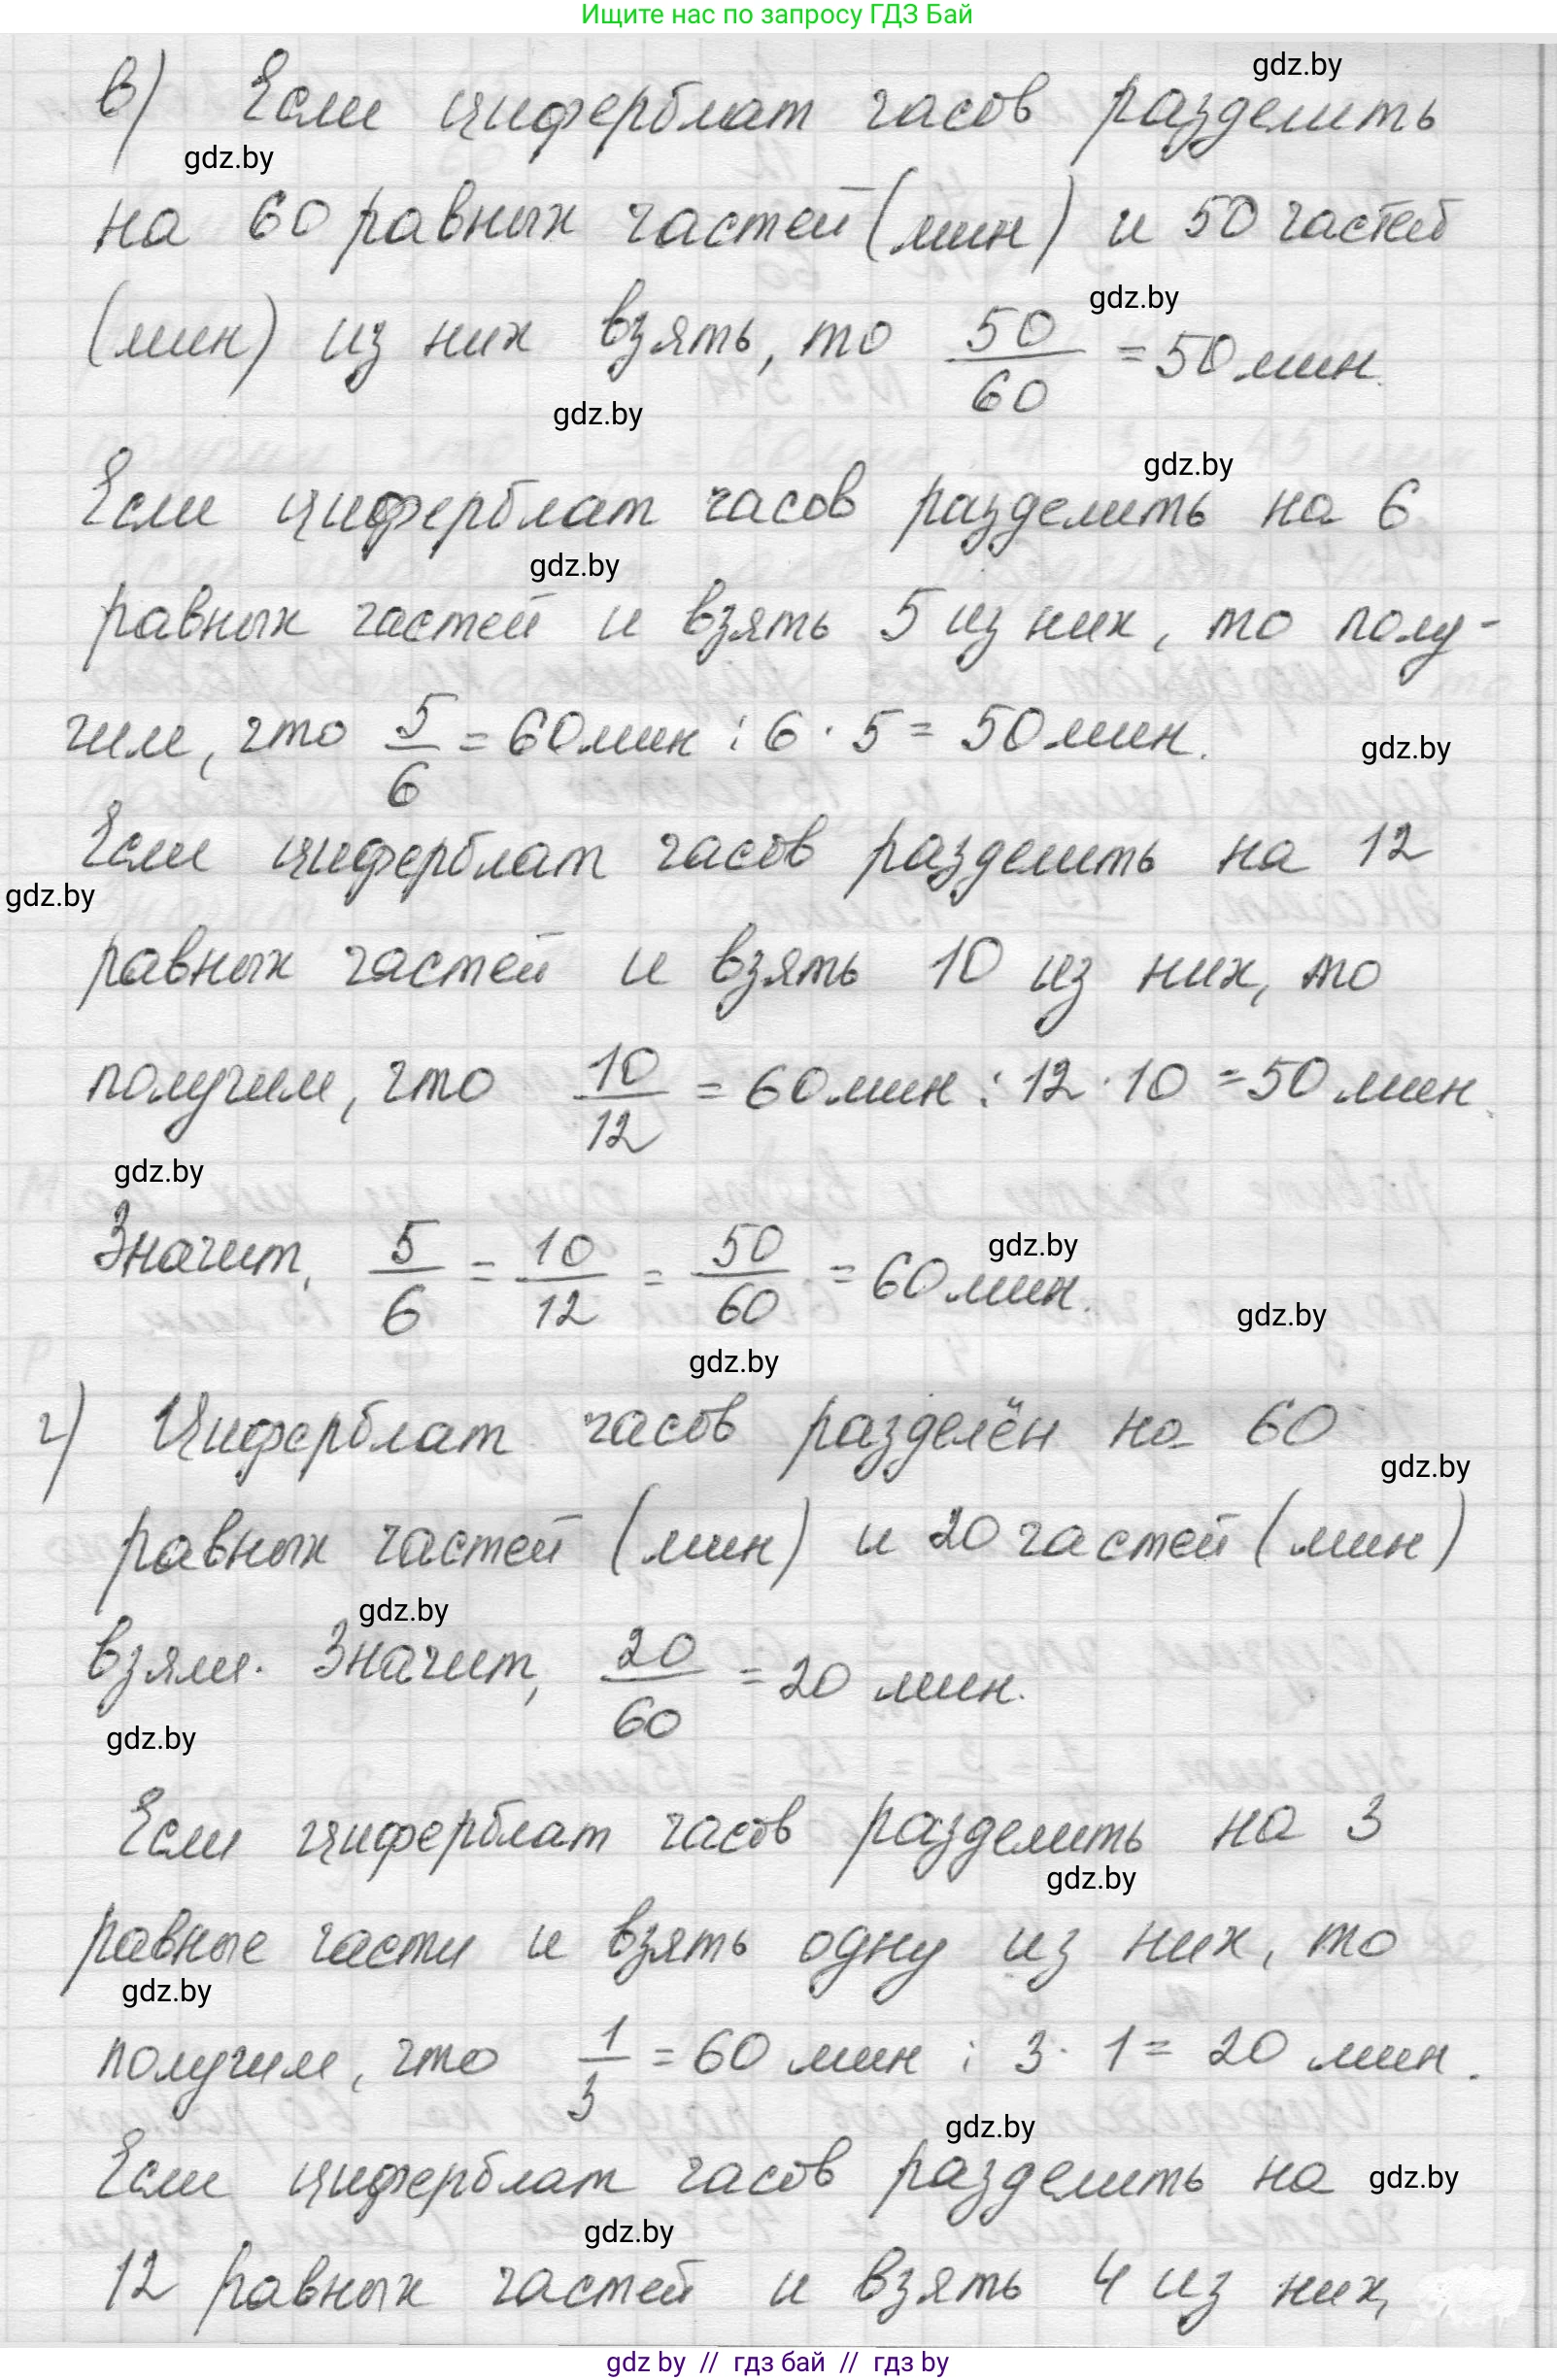 Ищите нас по запросу ГДЗ Бай
gdz.by
в) Если циферблат часов разделить
gdz.by
на 60 равных частей (мин) и 50 частей
gdz.by
(мин) из них взять, то 50/60 = 50 мин.
gdz.by
gdz.by
Если циферблат часов разделить на 6
gdz.by
равных частей и взять 5 из них, то полу-
чим, что 5/6 = 60 мин : 6 · 5 = 50 мин.
gdz.by
Если циферблат часов разделить на 12
gdz.by
равных частей и взять 10 из них, то
получим, что 10/12 = 60 мин : 12 · 10 = 50 мин.
gdz.by
Значит, 5/6 = 10/12 = 50/60 = 60 мин.
gdz.by
gdz.by
gdz.by
г) Циферблат часов разделён на 60
gdz.by
равных частей (мин) и 20 частей (мин)
gdz.by
взяли. Значит, 20/60 = 20 мин.
gdz.by
Если циферблат часов разделить на 3
gdz.by
равные части и взять одну из них, то
gdz.by
получим, что 1/3 = 60 мин : 3 · 1 = 20 мин.
gdz.by
Если циферблат часов разделить на
gdz.by
gdz.by
12 равных частей и взять 4 из них,
gdz by // гдз бай // гдз by